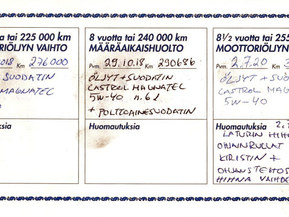 a tai 225 000 km
RIÖLJYN VAIHTO
2018 Km 276000
SUODATIN
MAGNATEC
ksia
8 vuotta tai 240 000 km
MÄÄRÄAIKAISHUOLTO
Pvm. 29.10.18 Km 290686
ÖLJYT + SUODATIN
CASTROL MAGNATEC
5W-40 n. 6 l
+ POLTTOAINESUODATIN
Huomautuksia
8½ vuotta tai 255
MOOTTORIÖLJYN
Pvm. 2.7.20 Km
ÖLJYT + SUO
CASTROL MAG
5W-40
Huomautuksia
LATURIN HIH
OHJAINRULLAT
KIRISTIN +
OHJAUSTEHOS
HIHNA VAIHD